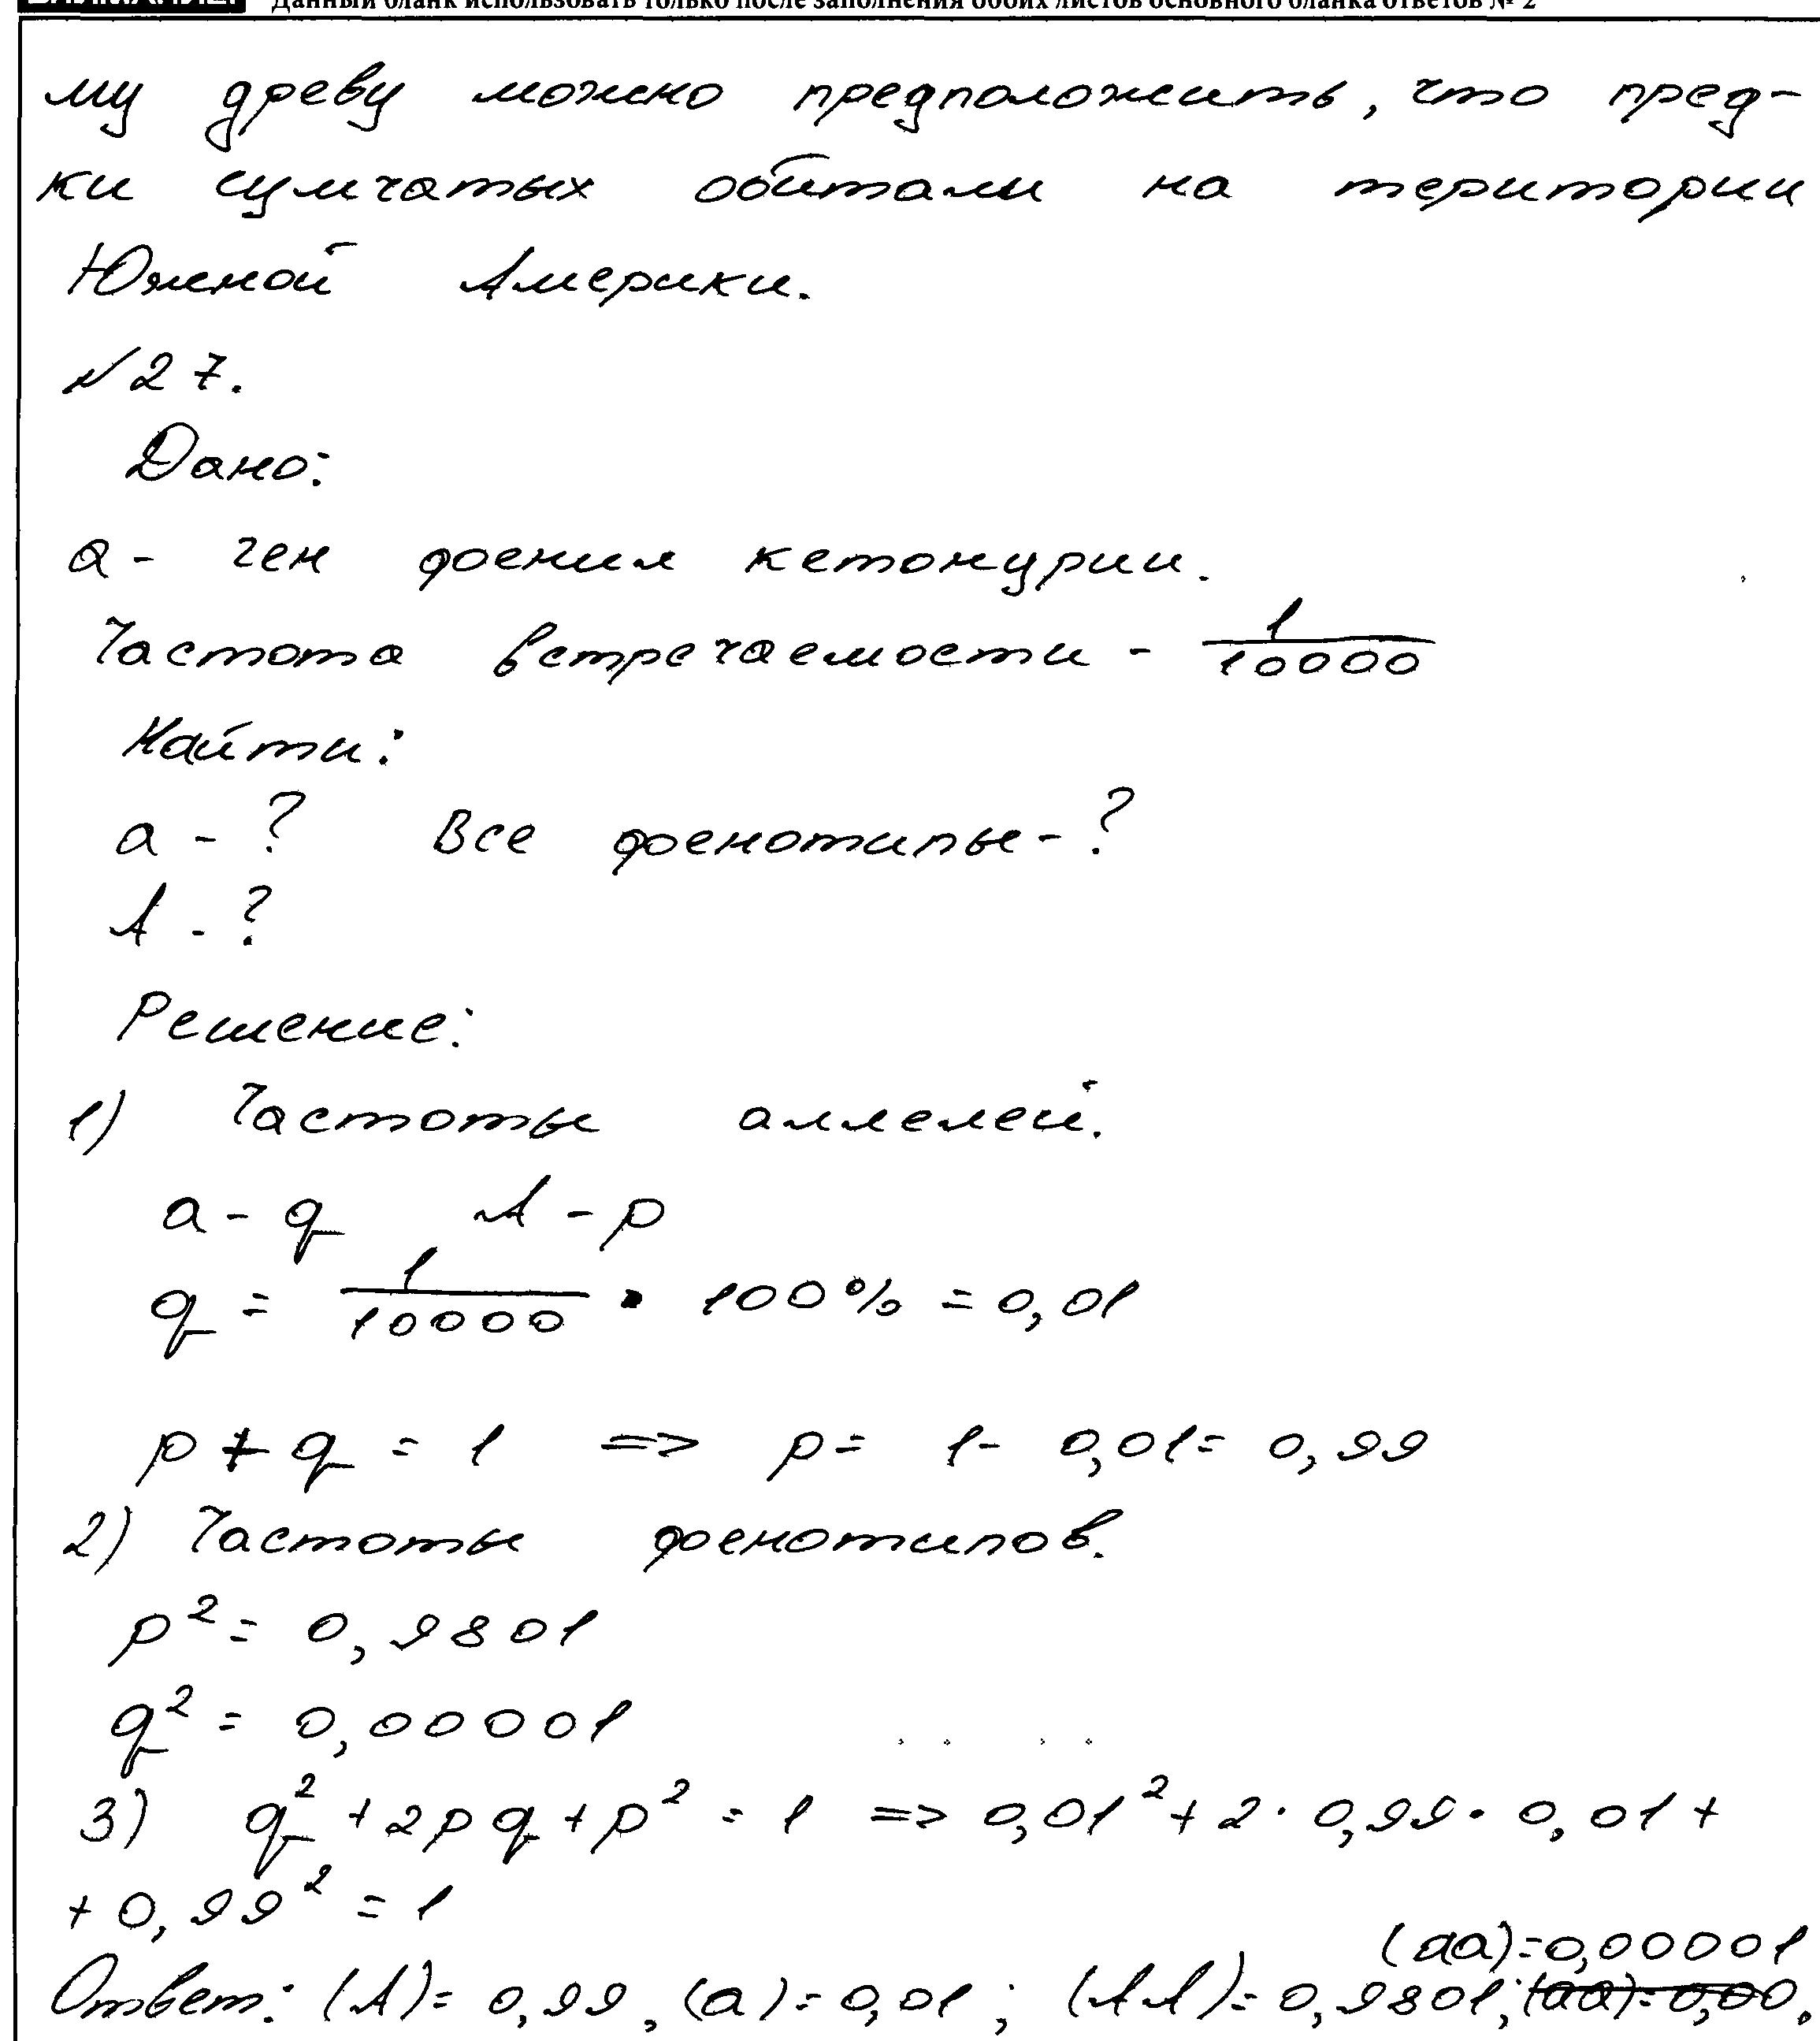 Данный бланк использовать только после заполнения обоих листов основного бланка ответов № 2
му древу можно предположить, что пред-
ки сумчатых обитали на територии
Южной Америки.
№27.
Дано:
a - ген фенил кетонурии.
Частота встречаемости - 1/10000
Найти:
a - ? Все фенотипы - ?
A - ?
Решение:
1) Частоты аллелей.
a - q A - p
q = 1/10000 · 100% = 0,01
p + q = 1 => p = 1 - 0,01 = 0,99
2) Частоты фенотипов.
p² = 0,9801
q² = 0,00001
3) q² + 2pq + p² = 1 => 0,01² + 2 · 0,99 · 0,01 +
+ 0,99² = 1
(aa) = 0,00001
Ответ: (A) = 0,99, (a) = 0,01; (AA) = 0,9801; (aa) = 0,00.